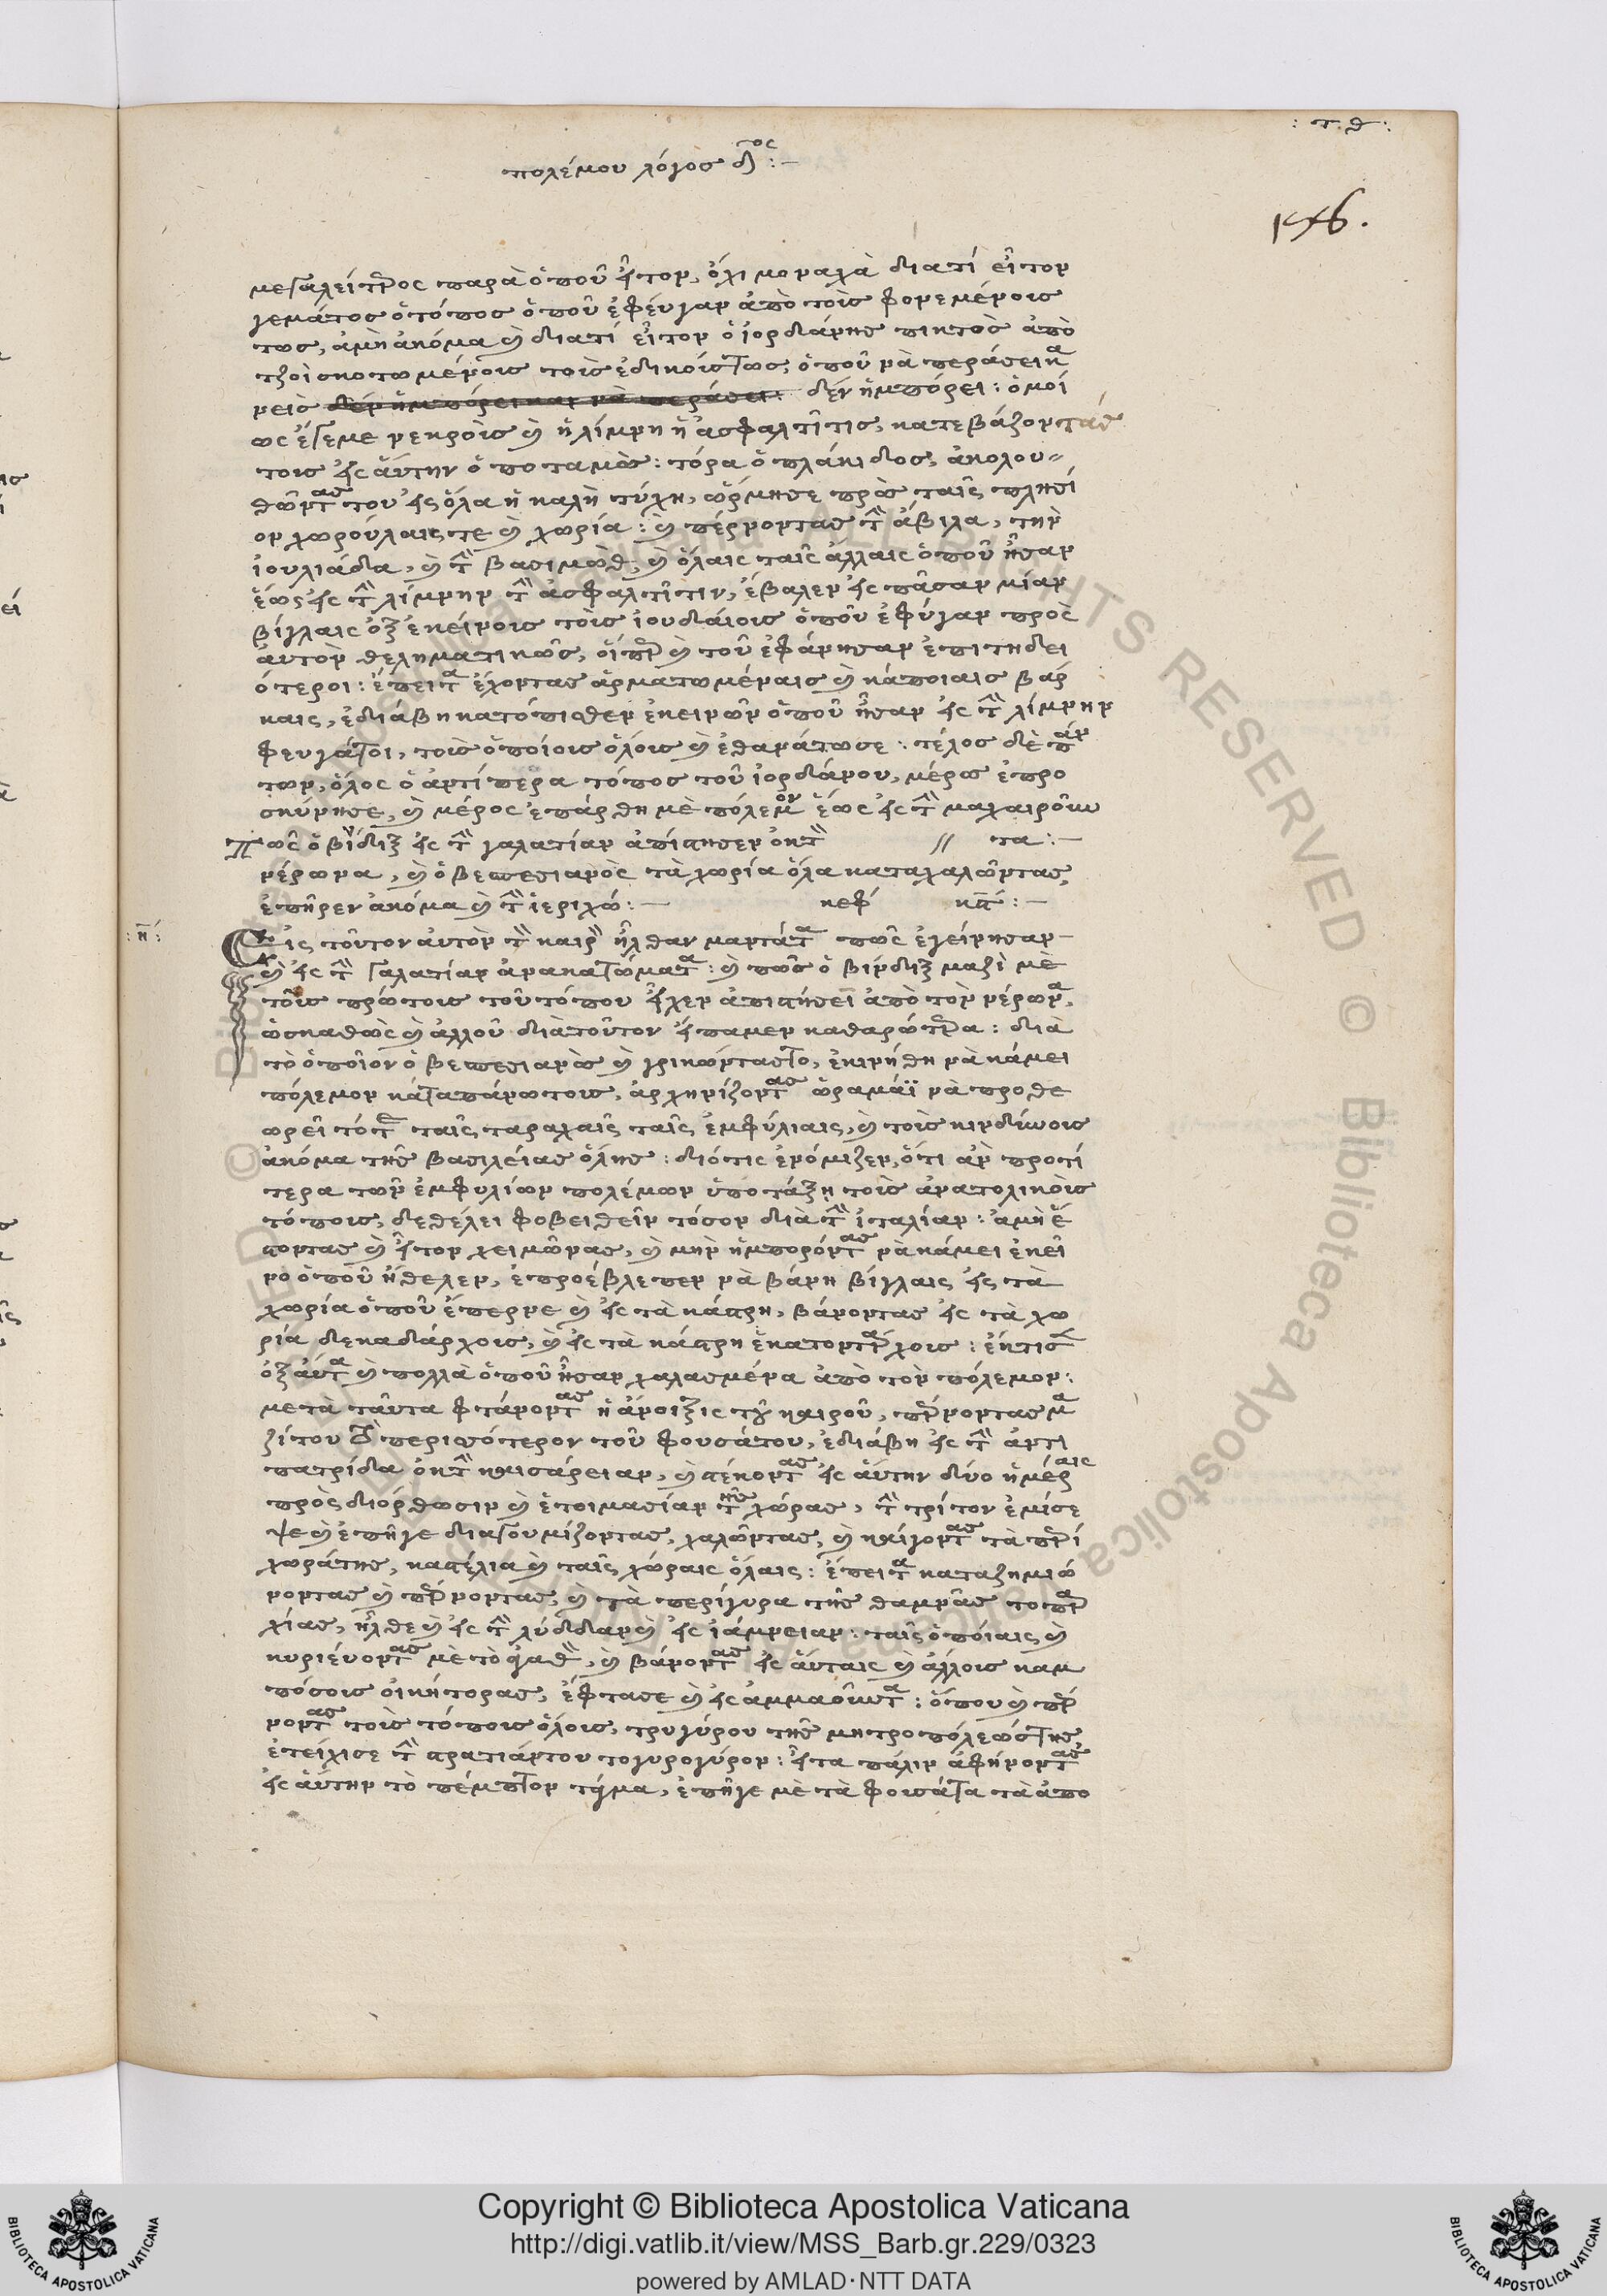 : τ. θ :
πολέμου λόγος δ^ος :—
156.
μεγαλείτερος παρὰ ὁποῦ ἦτον, ὄχι μοναχὰ διατί εἶτον
γεμάτος ὁ τόπος ὁποῦ ἐφεύγαν ἀπὸ τοὶς φονεμένοις
τως, ἀμὴ ἀκόμα καὶ διατί εἶτον ὁ ἰορδάνης πηκτὸς ἀπὸ
τζοὶ σκοτωμένοις τοὶς ἐδικοίς τως, ὁποῦ νὰ περάσει κα
νεὶς δὲν ἠμπόρει και νὰ περάσει. δὲν ἠμπόρει : ὁμοί
ως ἐγεμε νεκροὶς καὶ ἡ λίμνη ἡ ἀσφαλτίτις, κατεβάζοντάς
τοις εἰς αὐτην ὁ ποταμὸς : τόρα ὁ πλάκιδος, ἀκολου
θῶντας του εἰς ὅλα ἡ καλὴ τύχη, ὥρμησε πρὸς ταῖς πλησί
ον χωρούλαις τε καὶ χωρία : καὶ πέρνοντας τὴν ἄβιλα, τὴν
ἰουλιάδα, καὶ τὴν βασιμὼθ, καὶ ὅλαις ταῖς ἄλλαις ὁποῦ ἦσαν
ἕως εἰς τὴν λίμνην τὴν ἀσφαλτῖτιν, ἔβαλεν εἰς πᾶσαν μίαν
βίγλαις ὀξ ἐκείνοις τοὶς ἰουδαίοις ὁποῦ ἐφύγαν πρὸς
αὐτὸν θεληματικῶς, οἵπερ καὶ τοῦ ἐφάνησαν ἐπιτηδει
ότεροι : ἔπειτα ἔχοντας ἁρματωμέναις καὶ κάποιαις βάρ
καις, ἐδιάβη κατόπιθεν ἐκεινῶν ὁποῦ ἦσαν εἰς τὴν λίμνην
φευγάτοι, τοὶς ὁποίοις ὅλοις καὶ ἐθανάτωσε : τέλος δὲ πάν
των, ὅλος ὁ ἀντίπερα τόπος τοῦ ἰορδάνου, μέρος ἐπρο
σκύνησε, καὶ μέρος ἐπάρθη μὲ πόλεμον ἕως εἰς τὴν μαχαιροῦν
Πῶς ὁ βίνδιξ εἰς τὴν γαλατίαν ἀπίστησεν ὀκτὸν // τα :—
νέρωνα, καὶ ὁ βεσπεσιανὸς τὰ χωρία ὅλα καταχαλῶντας,
ἐπῆρεν ἀκόμα καὶ τὴν ἱεριχώ :— κεφ κη :—
: η : Εἰς τοῦτον αὐτὸν τὸν καιρὸν ἦλθαν μαντάτα πῶς ἐγείρησαν
καὶ εἰς τὴν γαλατίαν ἀνακατώματα : καὶ πῶς ὁ βίνδιξ μαζὶ μὲ
τοῖς πρώτοις τοῦ τόπου εἶχεν ἀπιστήσει ἀπὸ τὸν νέρωνα,
ὡσκαθὼς καὶ ἀλλοῦ διὰ τοῦτον εἴπαμεν καθαρώτερα : διὰ
τὸ ὁποῖον ὁ βεσπεσιανὸς καὶ γρικώντας το, ἐκινήθη νὰ κάμει
πόλεμον κάτα πάνω τοις, ἀρχηνίζοντας ὡραμάϊ νὰ προθε
ωρεῖ τότε ταῖς ταραχαῖς ταῖς ἐμφύλιαις, καὶ τοὶς κινδύνοις
ἀκόμα τῆς βασιλείας ὅλης : διότις ἐνόμιζεν, ὅτι ἂν προτί
τερα τῶν ἐμφυλίων πολέμων ὑποτάξη τοὶς ἀνατολικοὶς
τόποις, δὲ θέλει φοβειθεῖν τόσον διὰ τὴν ἰταλίαν : ἀμὴ ἔ
στοντας καὶ ἦτον χειμῶνας, καὶ μὴν ἠμπορόντας νὰ κάμει ἐκεῖ
νο ὁποῦ ἤθελεν, ἐπροέβλεπεν νὰ βάνη βίγλαις εἰς τὰ
χωρία ὁποῦ ἔπερνε καὶ εἰς τὰ κάστρη, βάνοντας εἰς τὰ χω
ρία δεκαδάρχοις, καὶ εἰς τὰ κάστρη ἑκατοντάρχοις : ἔκτισε
ὀξ αὐτα καὶ πολλὰ ὁποῦ ἦσαν χαλασμένα ἀπὸ τὸν πόλεμον :
μετὰ ταῦτα φτάνοντας ἡ ἄνοιξις τοῦ καιροῦ, πέρνοντας μα
ζί του τὸ περισσότερον τοῦ φουσάτου, ἐδιάβη εἰς τὴν ἀντι
πατρίδα ὀκ τὴν καισάρειαν, καὶ στέκοντας εἰς αὐτην δύο ἡμέραις
πρὸς διόρθωσιν καὶ ἑτοιμασίαν τῆς χώρας, τὴν τρίτον ἐμίσε
ψε καὶ ἐπῆγε διαγουμίζοντας, χαλῶντας, καὶ καίγοντας τὰ περί
χωρά της, καστέλια καὶ ταῖς χώραις ὅλαις : ἔπειτα καταζημιώ
νοντας καὶ πέρνοντας, καὶ τὰ περίγυρα τῆς θαμνᾶς τοπαρ
χίας, ἦλθε καὶ εἰς τὴν λύδδαν καὶ εἰς ἰάμνειαν : ταῖς ὁποίαις καὶ
κυριεύοντας μὲ τὸ σπαθὴ, καὶ βάνοντας εἰς αὐταις καὶ ἄλλοις καμ
πόσοις οἰκήτορας, ἔφτασε καὶ εἰς ἀμμαοῦντα : ὅπου καὶ πέρ
νοντας τοὶς τόποις ὅλοις, τρυγύρου τῆς μητροπόλεώς της,
ἐτείχισε τὴν στρατιάν του τογυρογύρον : εἶτα πάλιν ἀφήνοντας
εἰς αὐτην τὸ πέμπτον τάγμα, ἐπῆγε μὲ τὰ φουσάτα τὰ ἀπο
Copyright © Biblioteca Apostolica Vaticana
http://digi.vatlib.it/view/MSS_Barb.gr.229/0323
powered by AMLAD·NTT DATA